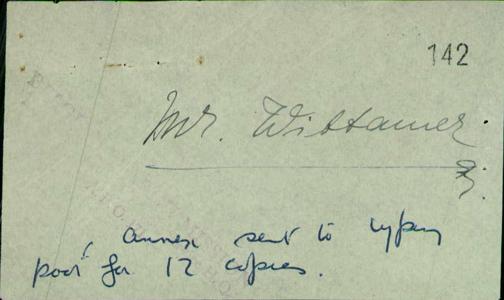 142
Mr. Wittamer
Annex sent to typing
pool for 12 copies.